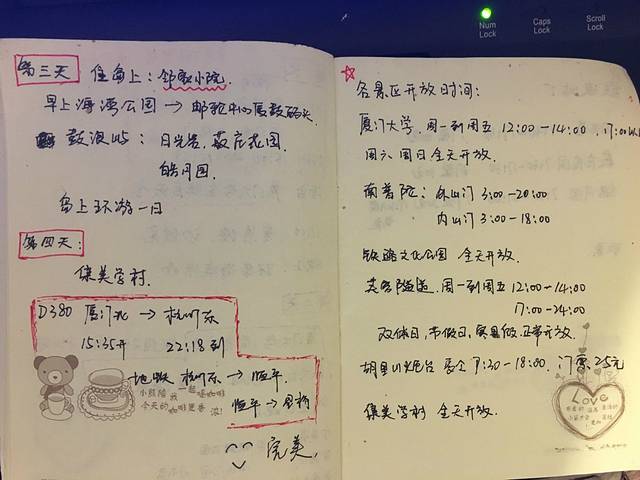 Num Lock
Caps Lock
Scroll Lock
第三天 住岛上：邻家小院.
早上海湾公园 → 邮轮中心厦鼓码头.
鼓浪屿： 日光岩, 菽庄花园.
皓月园.
岛上环游一日
第四天：
集美学村.
D380 厦门北 → 杭州东
15:35开 22:18到
地铁 杭州东 → 临平.
临平 →
小熊陪我一起喝咖啡
今天的咖啡更香浓！
完美.
☆
各景区开放时间：
厦门大学. 周一到周五 12:00-14:00 , 17:00以
周六周日全天开放.
南普陀： 外山门 3:00-20:00
内山门 3:00-18:00
铁路文化公园 全天开放.
芙蓉隧道. 周一到周五 12:00-14:00
17:00-24:00
双休日, 节假日, 寒暑假. 正常开放.
胡里山炮台 夏令 7:30-18:00. 门票25元
集美学村 全天开放.
Love